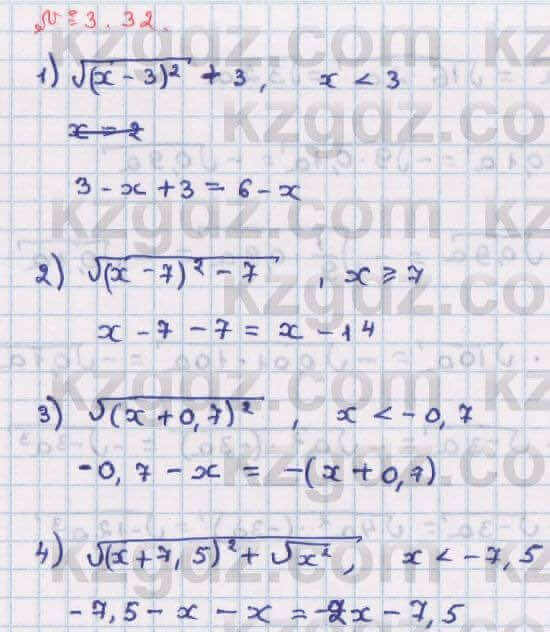 № 3.32.
1) √(x - 3)² + 3, x < 3
x = 2
3 - x + 3 = 6 - x
2) √(x - 7)² - 7, x ⩾ 7
x - 7 - 7 = x - 14
3) √(x + 0,7)², x < - 0,7
-0,7 - x = -(x + 0,7)
4) √(x + 7,5)² + √x², x < - 7,5
-7,5 - x - x = -2x - 7,5
kzgdz.com